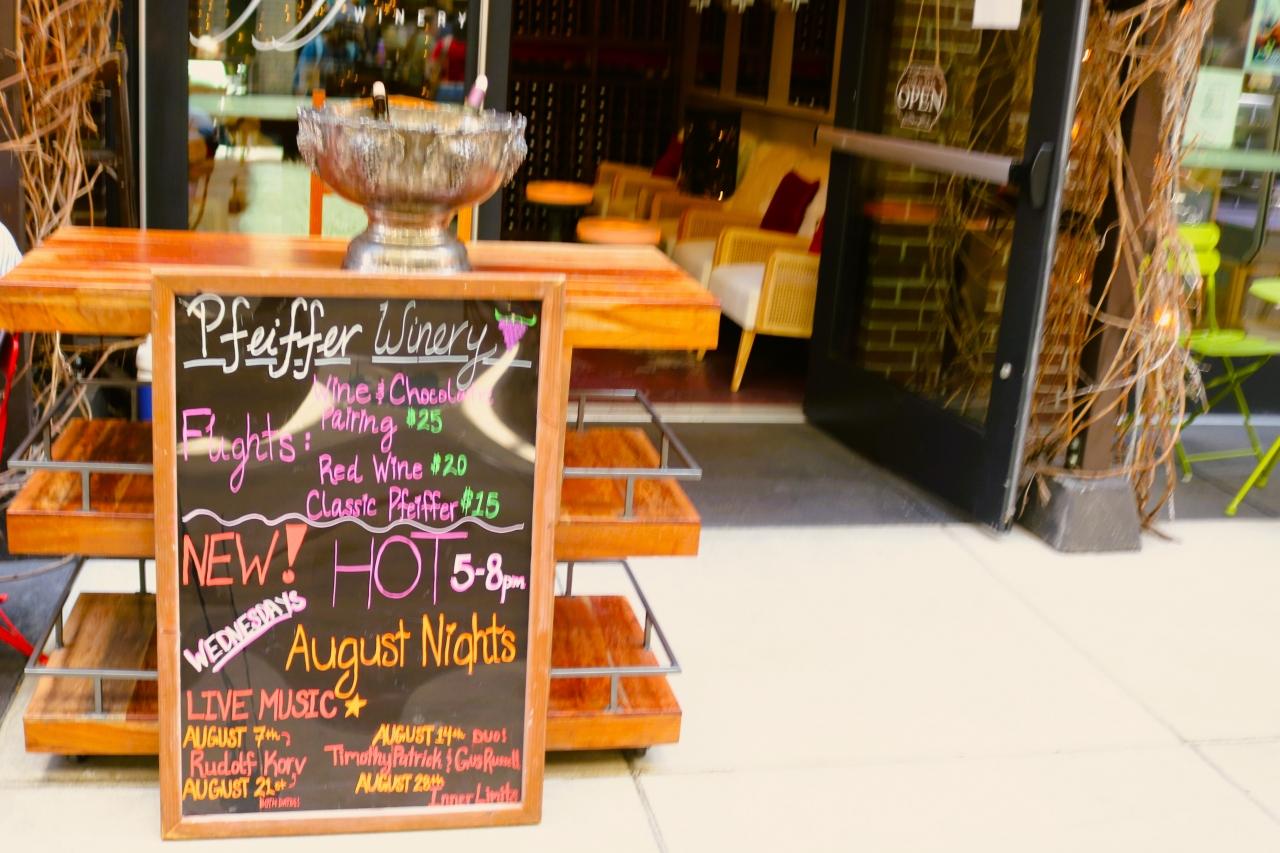 WINERY
OPEN
Pfeiffer Winery
Wine & Chocolate
Flights: Pairing $25
Red Wine $20
Classic Pfeiffer $15
NEW! HOT 5-8pm
WEDNESDAYS
August Nights
LIVE MUSIC
AUGUST 7th
Rudolf Kory
AUGUST 21st
BOTH DATES!
AUGUST 14th DUO!
Timothy Patrick & Gus Russell
AUGUST 28th
Inner Limits